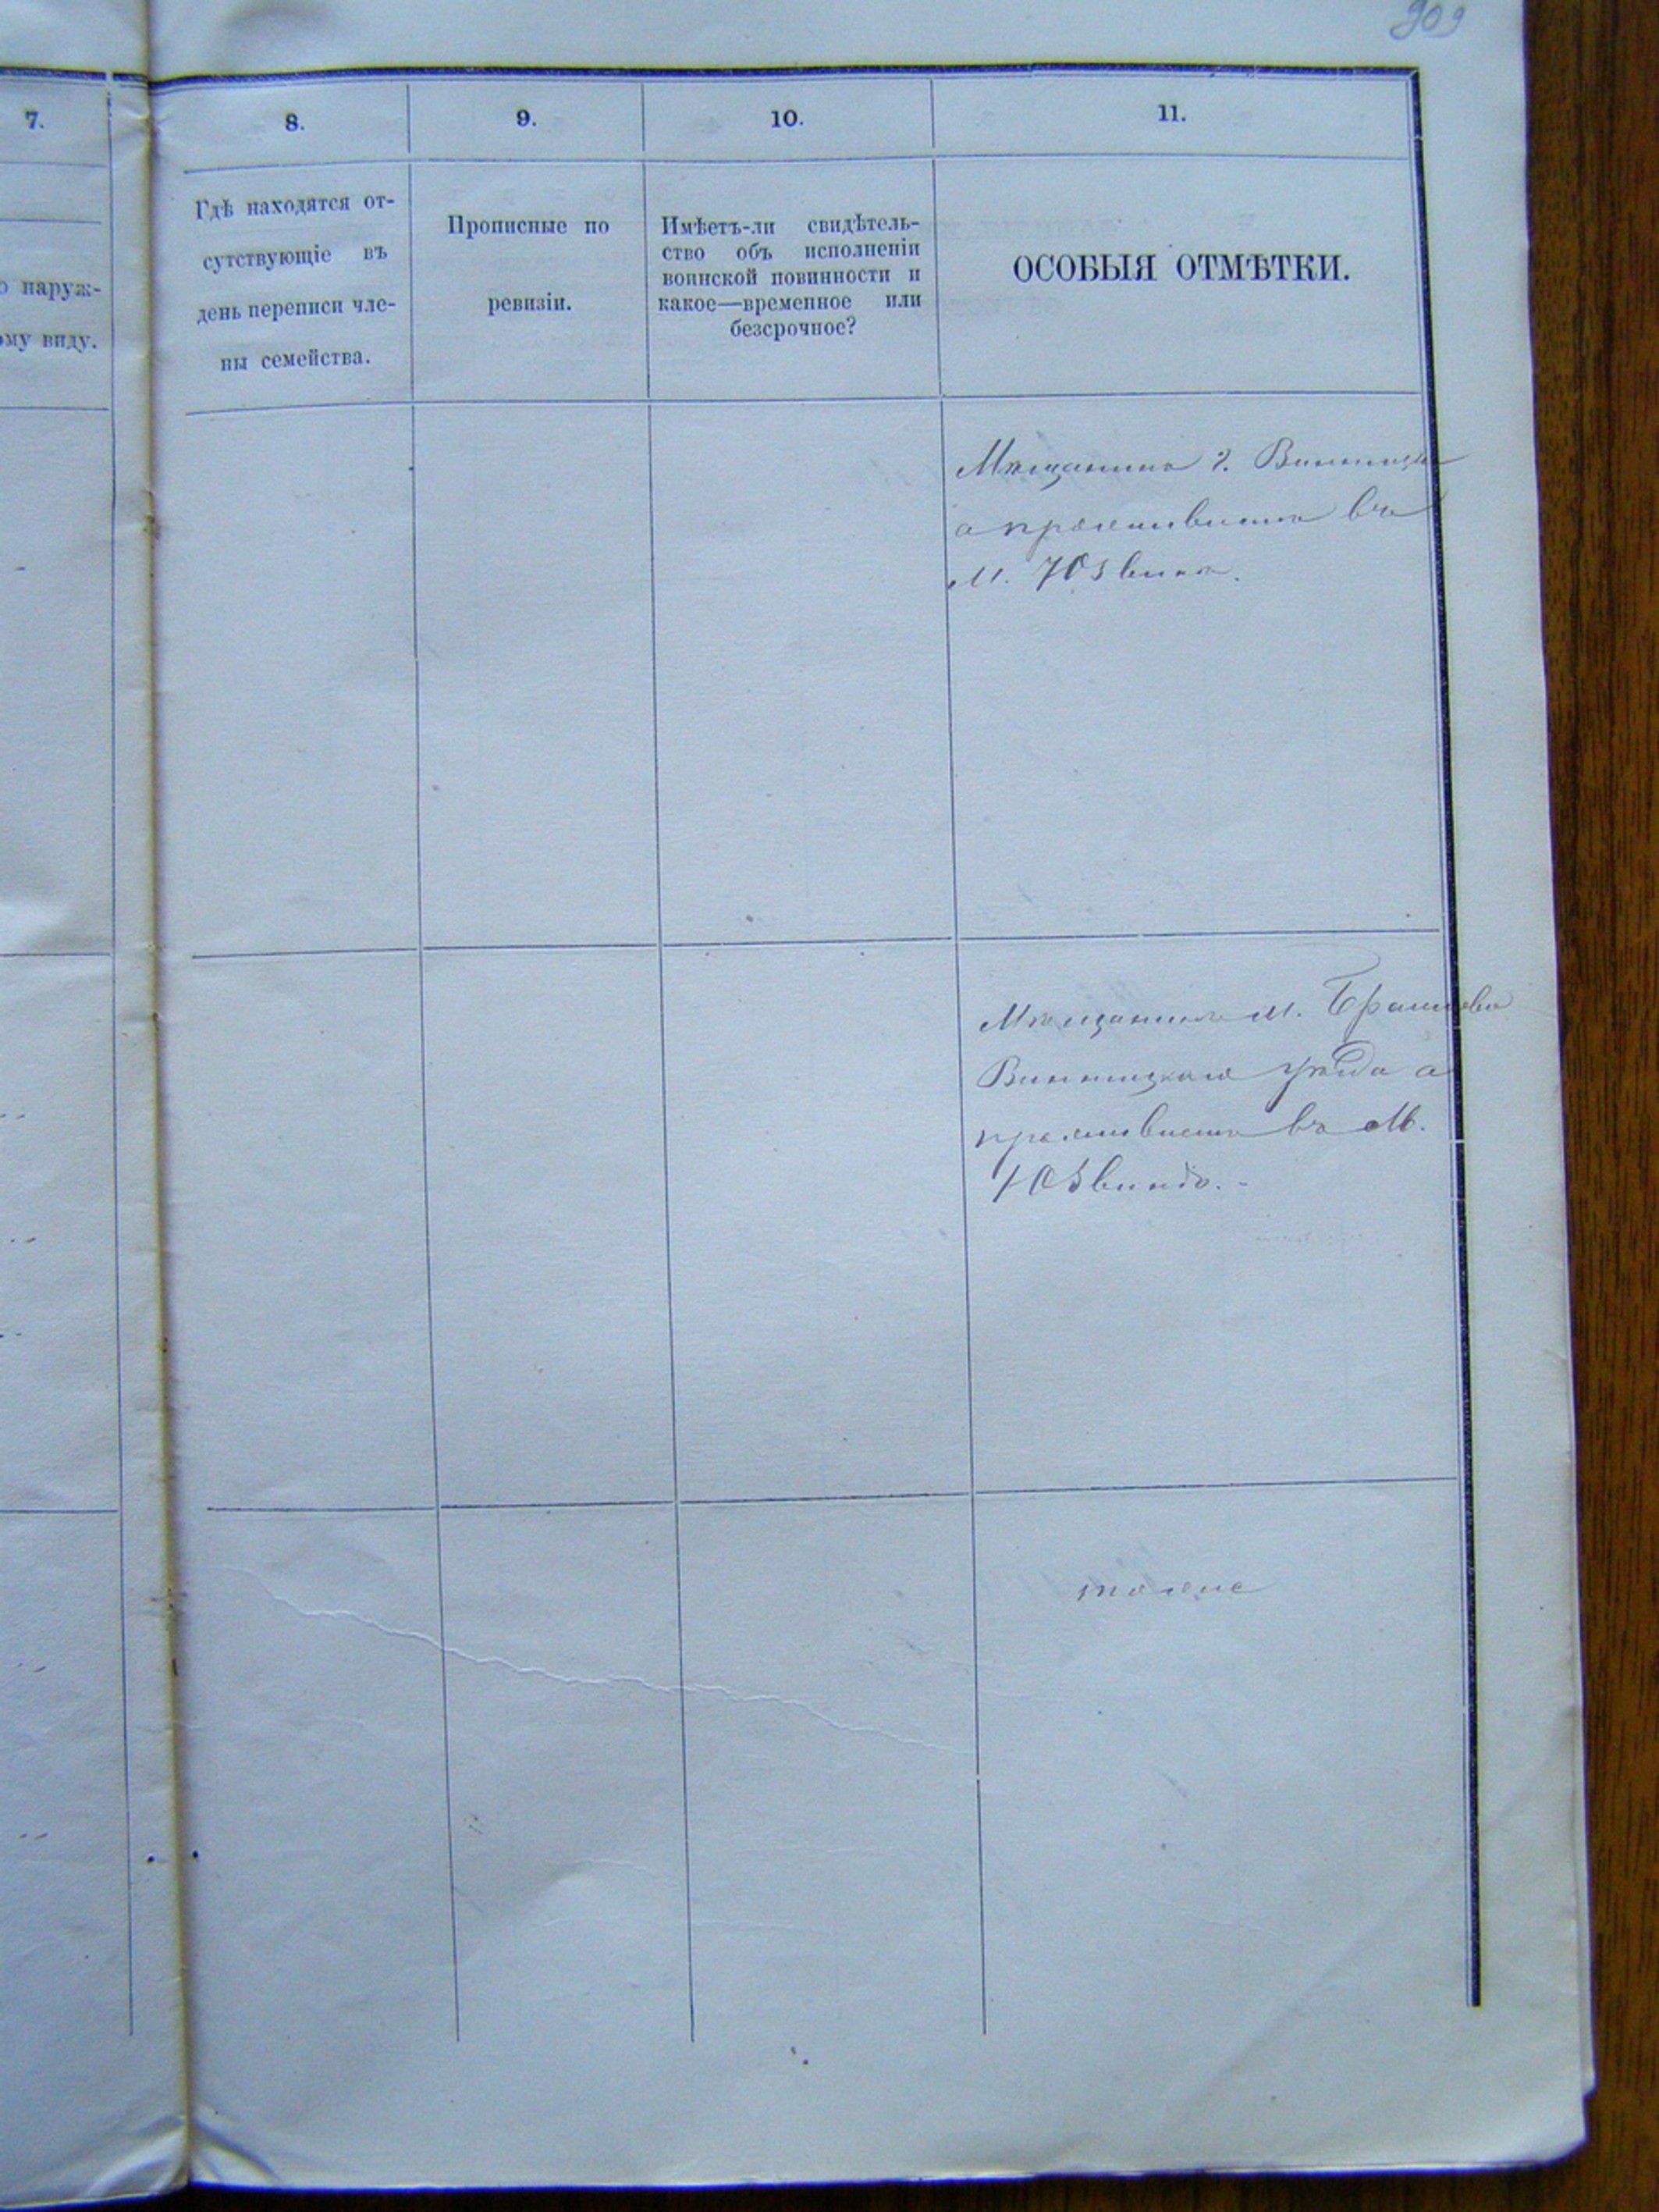 909
7.
8.
9.
10.
11.
о наруж-
ому виду.
Гдѣ находятся от-
сутствующіе въ
день переписи чле-
ны семейства.
Прописные по
ревизіи.
Имѣетъ-ли свидѣтель-
ство объ исполненіи
воинской повинности и
какое—временное или
безсрочное?
ОСОБЫЯ ОТМѢТКИ.
Мѣщанинъ г. Винницы
а проживаетъ въ
м. Юзвинѣ.
Мѣщанинъ м. Браилова
Винницкаго уѣзда а
проживаетъ въ м.
Юзвинѣ.
тоже